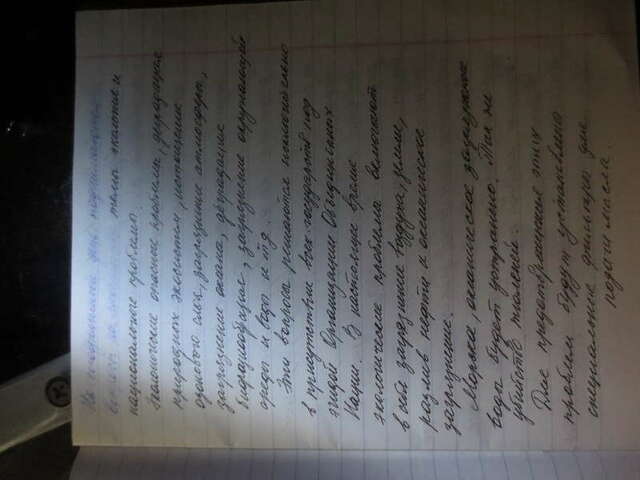 На сегодняшний день поднимаются
вопросы на темы экологие и
национальные проблемы.
Экологические опасные проблемы, деградация
природных экосистем, истощение
озонового слоя, загрязнение атмосферы,
загрязнение океана, деградация
биоразнообразия, загрязнение окружающей
среды и воды и тд.
Эти вопросы решаются исключительно
в присутствие всех государств под
эгидой Организации Объединённых
Нации. В настоящее время
экологические проблемы включают
в себя загрязнение воздуха, земли,
разлив нефти и океаническое
загрязнение.
Морска, океаническое загрязнение
воды будет устранено. Так же
убийство тюленей.
Для предотвращения этих
проблем будут установлена
специальные фильтры для
подачи масла.